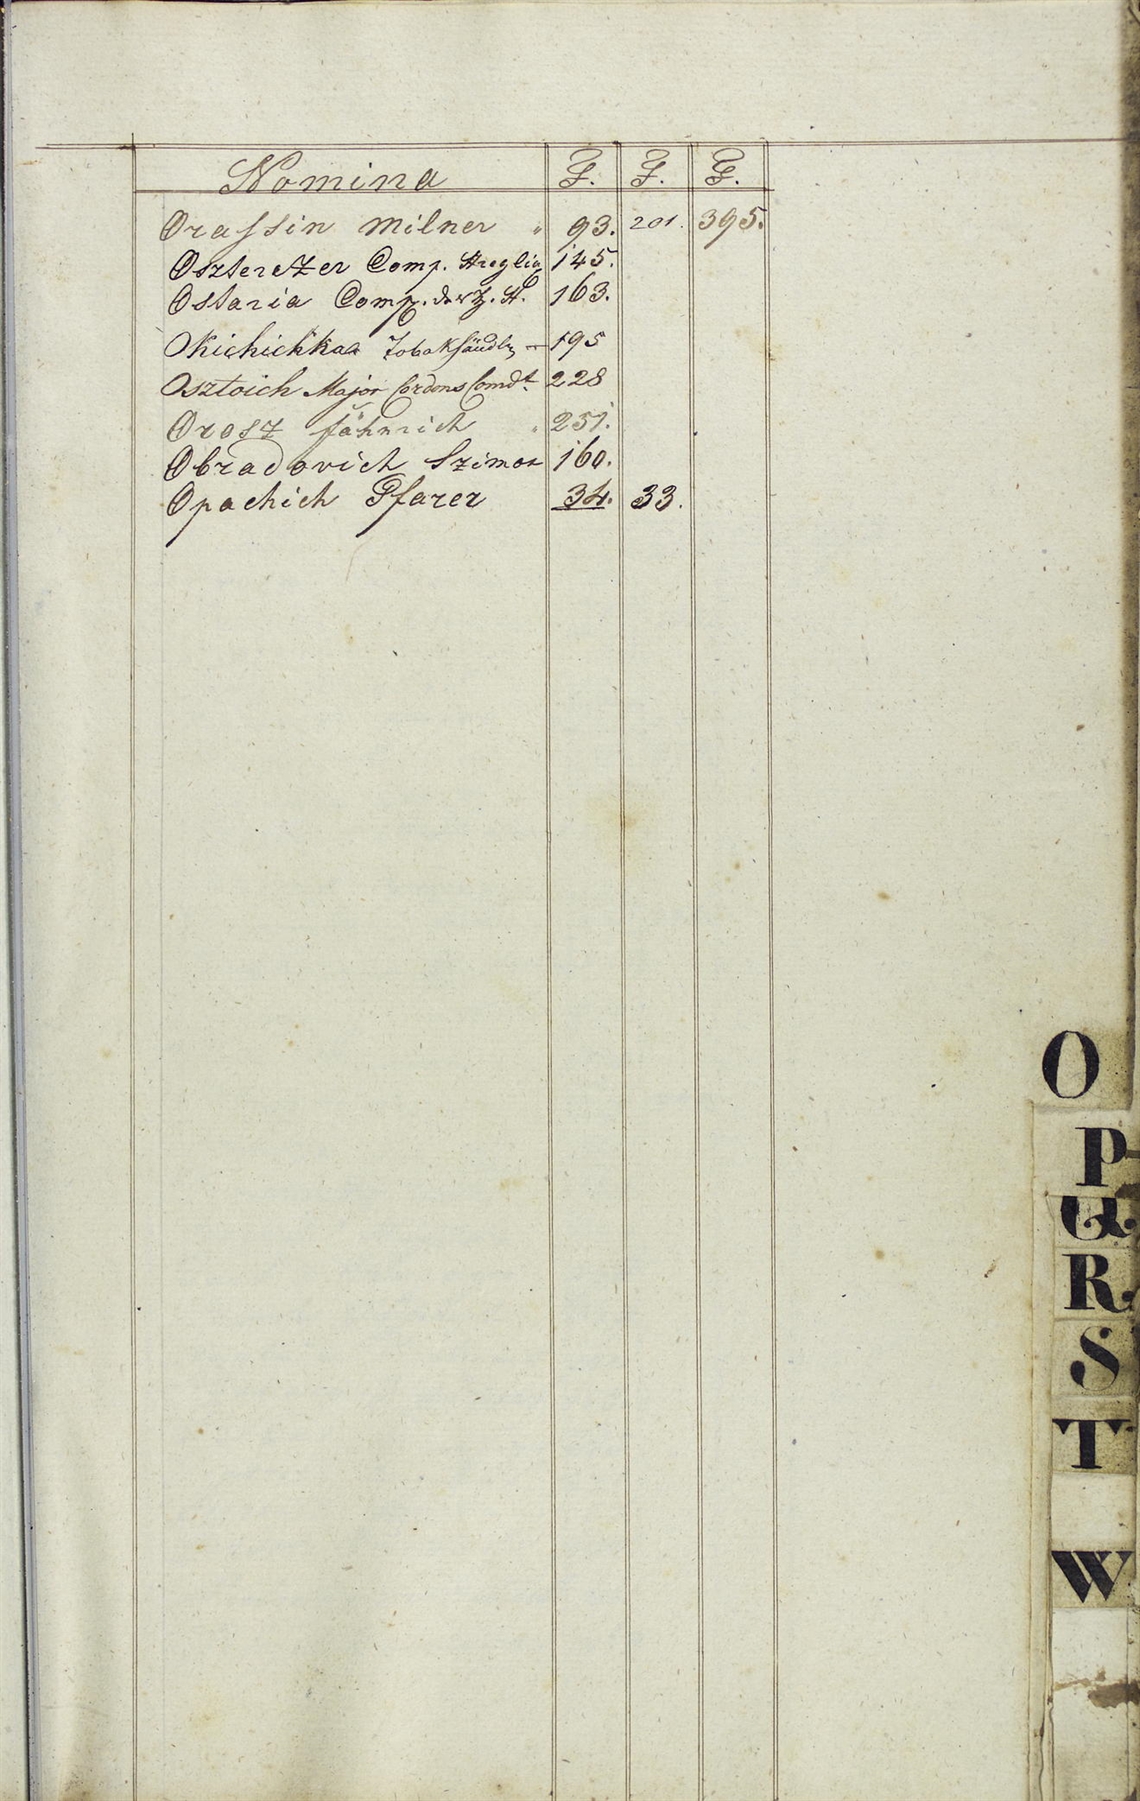 Nomina F. F. F.
Orassin Milner " 93. 201. 395.
Oszteretzer Comp. 145.
Ostaria Comp. 163.
Okichichkaa – 195
Osztoich Major Cordons Comdt. 228
Orosz fähnrich " 251.
Obradovich Szimon 160.
Opachich Pfarer 34. 33.
O
P
Q
R
S
T
W